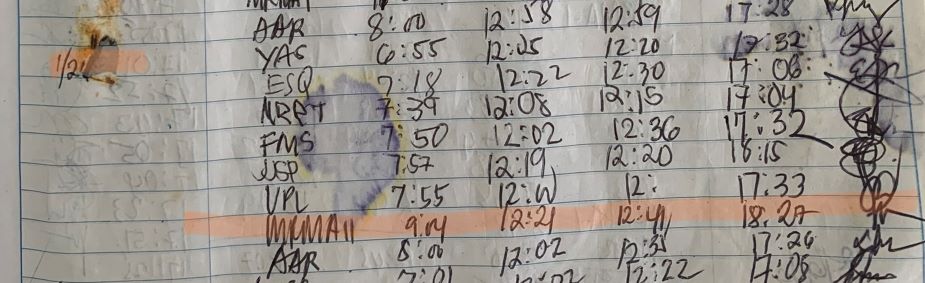 AAR 8:00 12:58 12:59 17:28
YAS 6:55 12:05 12:20 17:32
1/26
ESQ 7:18 12:22 12:30 17:06
7:39 12:08 12:15 17:04
FMS 7:50 12:02 12:36 17:32
JSP 7:57 12:19 12:20 18:15
VPL 7:55 12: 12: 17:33
MRMAII 9:04 12:21 12:41 18:27
AAR 8:00 12:02 17:26
12:22 17:08